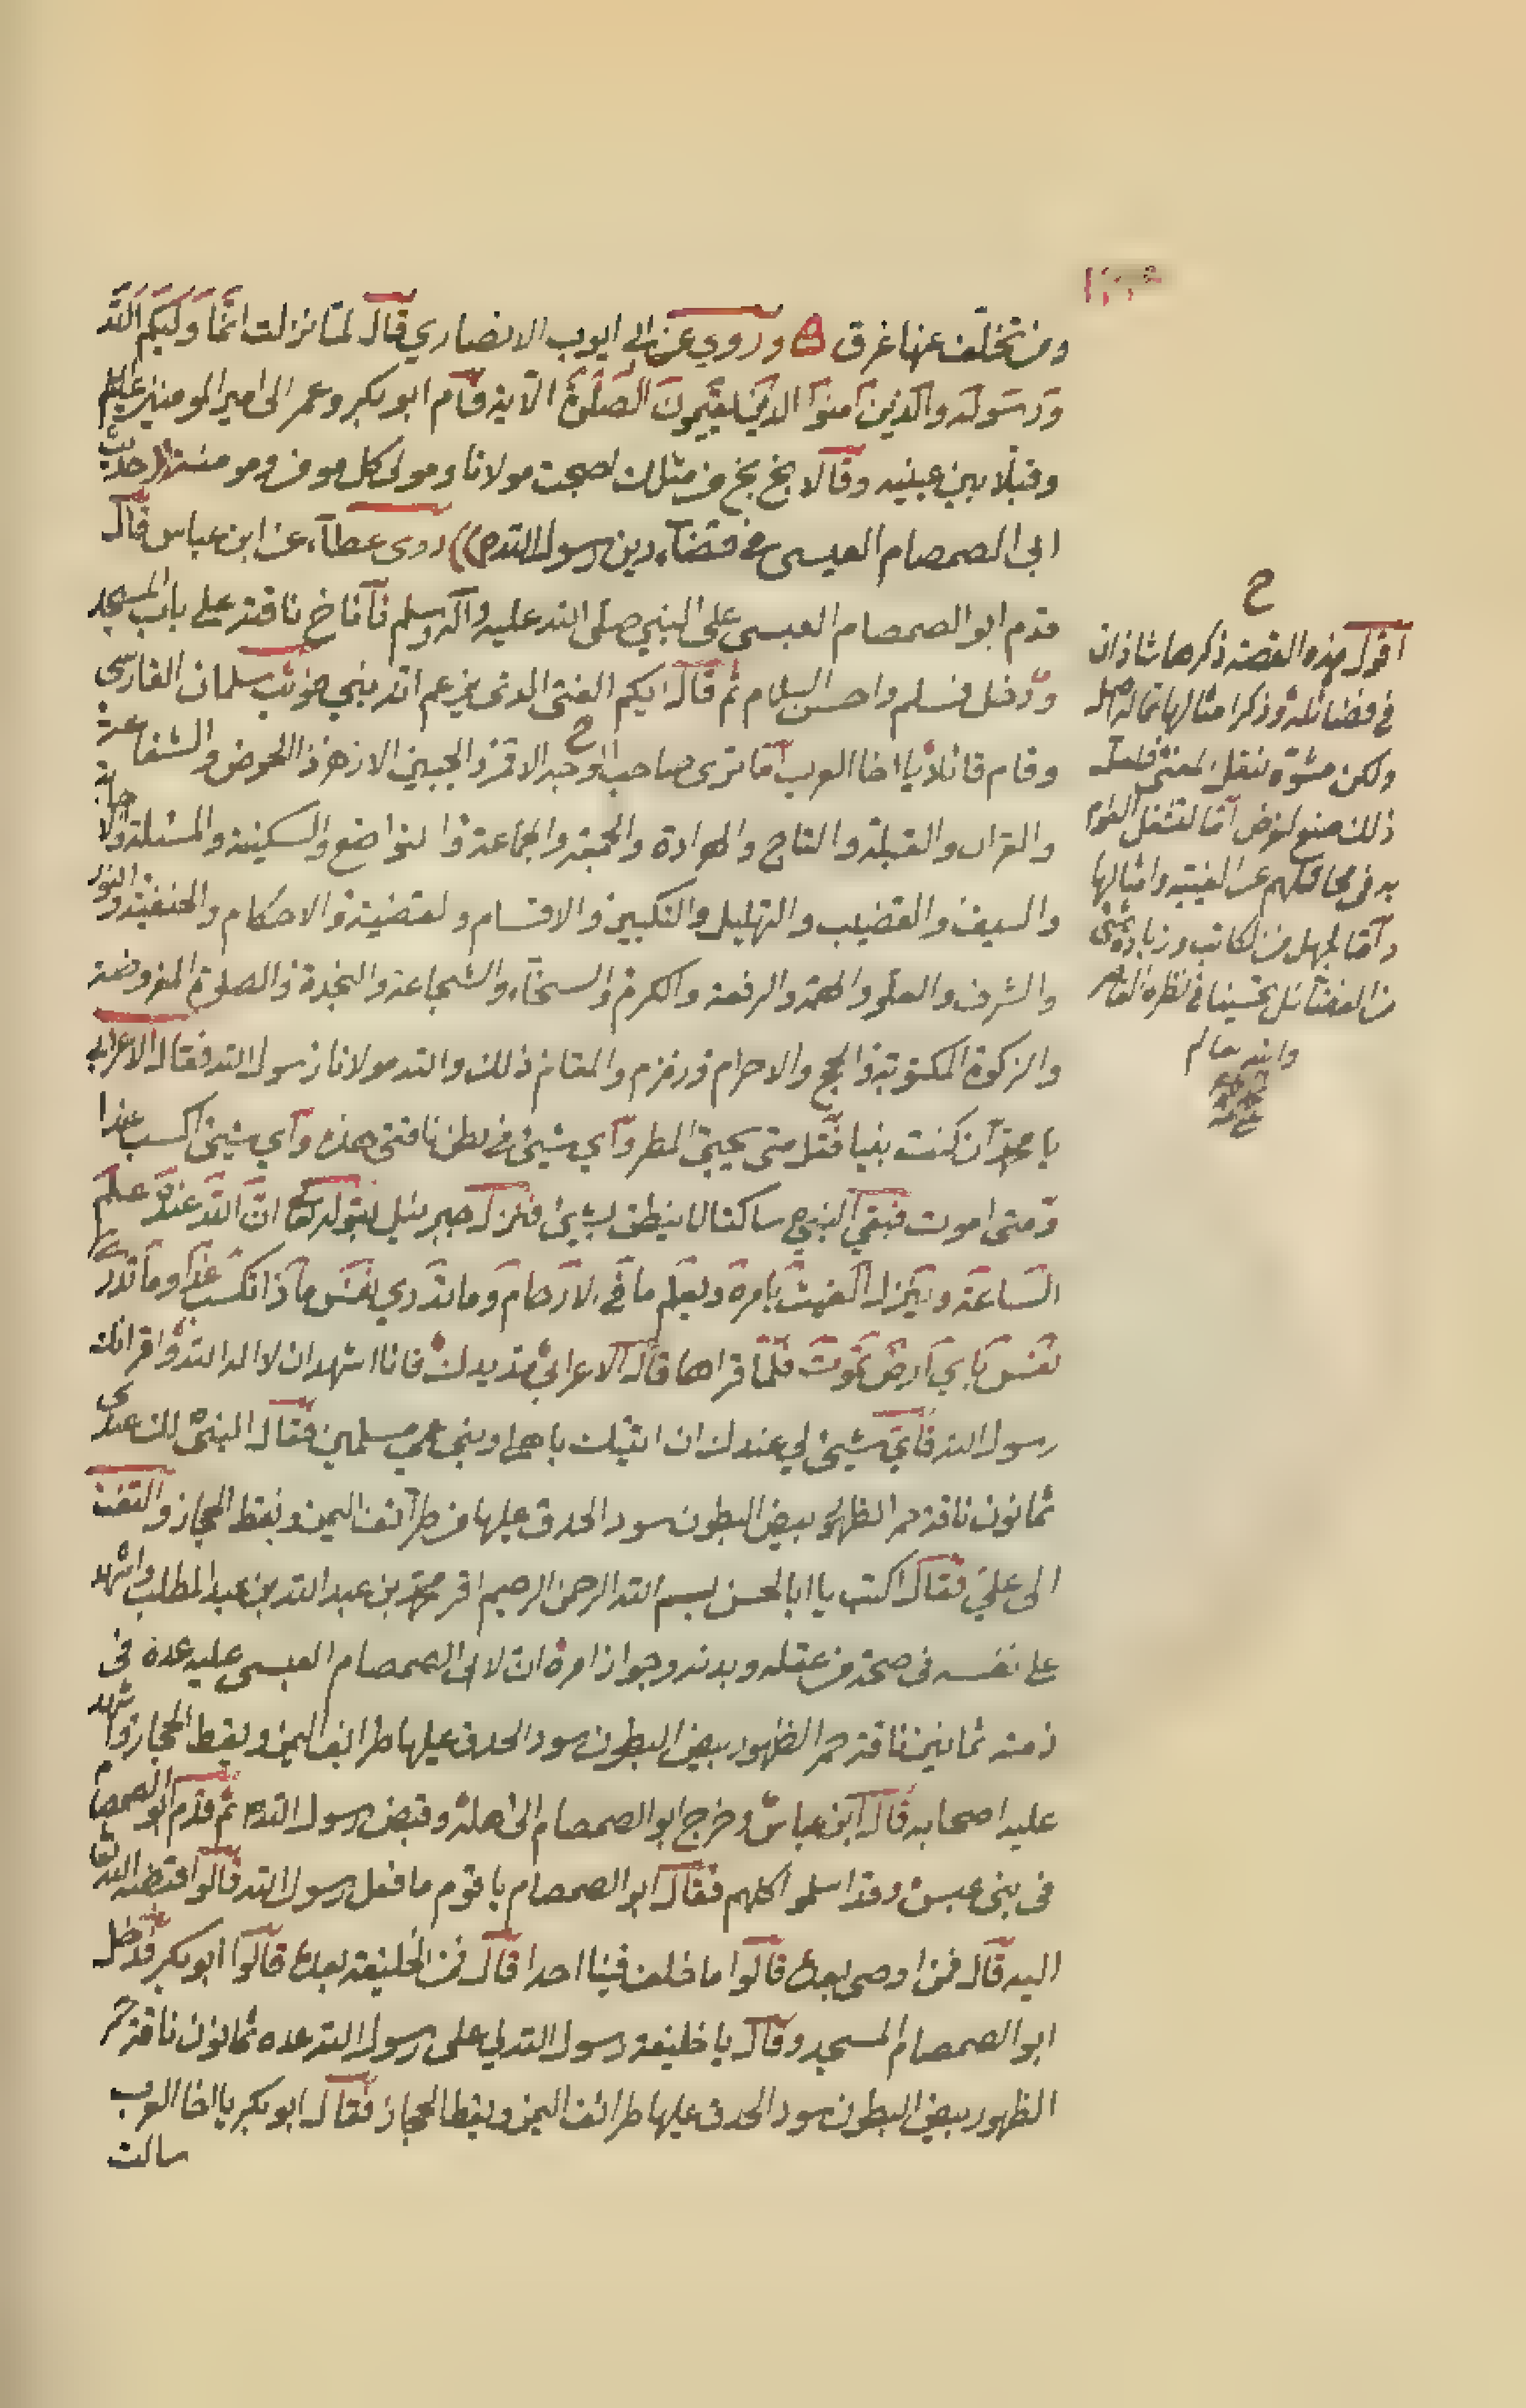 ومن تخلف عنها غرق وروي عن ابي ايوب الانصاري قال لما نزلت انما وليكم الله
ورسوله والذين آمنوا الذين يقيمون الصلوة الآية قام ابو بكر وعمر الى امير المومنين عليهم
وقبلا بين عينيه وقالا بخ بخ من مثلك اصبحت مولانا ومولى كل مومن ومومنة (( حديث
ابى الصمصام العبسى فى قضاء دين رسول الله ص )) روى عطاء عن ابن عباس قال
قدم ابو الصمصام العبسى على النبي صلى الله عليه وآله وسلم فاناخ ناقته على باب المسجد
ودخل فسلم واحسن السلام ثم قال ايكم الفتى الذى يزعم انه نبي فوثب سلمان الفارسى
وقام قائلا يا اخا العرب أما ترى صاحب الوجه الاقمر والجبين الازهر والحوض والشفاعة
والقران والقبلة والتاج والهرادة والجمعة والجماعة والتواضع والسكينة والمسئلة والاجابة
والسيف والقضيب والتهليل والتكبير والاقسام والقضية والاحكام والحنفية والنور
والشرف والعلو والهمة والرفعة والكرم والسخاء والشجاعة والنجدة والصلوة المفروضة
والزكوة المكتوبة والحج والاحرام وزمزم والمقام ذلك والله مولانا رسول الله فقال الاعرابى
يا محمد ان كنت نبيا فقل متى يجيئ المطر وأي شيئ فى بطن ناقتى هذه وأي شيئ اكسب غدا
ومتى اموت فبقي النبي ص ساكتا لا ينطق بشيئ فنزل جبرئيل بقوله تعا ان الله عنده علم
الساعة وينزل الغيث بامره ويعلم ما في الارحام وما تدري نفس ماذا تكسب غدا وما تدرى
نفس باي ارض تموت فلما قراها قال الاعرابي مد يدك فانا اشهد ان لا اله الا الله واقر انك
رسول الله فاي شيئ لي عندك ان اتيتك باهلى وبني عمي مسلمين فقال النبي لك عندى
ثمانون ناقة حمر الظهور بيض البطون سود الحدق عليها من طرائف اليمن ونقط الحجاز والتفت
الى علي فقال اكتب يا ابا الحسن بسم الله الرحمن الرحيم اقر محمد بن عبد الله بن عبد المطلب واشهد
على نفسه فى صحة من عقله وبدنه وجواز امره ان لابى الصمصام العبسى عليه عده فى
ذمته ثمانين ناقة حمر الظهور بيض البطون سود الحدق عليها طرائف اليمن ونقط الحجاز واشهد
عليه اصحابه قال ابن عباس وخرج ابو الصمصام الى اهله وقبض رسول الله ص ثم قدم ابو الصمصام
فى بنى عبس وقد اسلموا كلهم فقال ابو الصمصام يا قوم ما فعل رسول الله قالوا قبضه الله تعا
اليه قال فمن اوصى بعده قالوا ما خلف فينا احدا قال فمن الخليفة بعده قالوا ابو بكر فدخل
ابو الصمصام المسجد وقال يا خليفة رسول الله لي على رسول الله عده ثمانون ناقة حمر
الظهور بيض البطون سود الحدق عليها طرائف اليمن ونقط الحجاز فقال ابو بكر يا اخا العرب
سالت
ح
اقول هذه القصة ذكرها شاذان
في فضائله وذكر امثالها
ولكن مشوه بنقل لمعنى فلعل
ذلك صنع لغرض اما لتشغل العوام
به فى محافلهم عن الغيبة وامثالها
واما لجهل من الكاتب وزيادة
من الفضائل تحسينا فى نظره القاصر
والله عالم